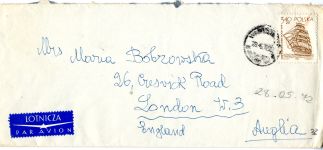 3,40 POLSKA
Mrs Maria Bobrowska
26, Creswick Road
London W.3
England Anglia
28.05.72
LOTNICZA
PAR AVION